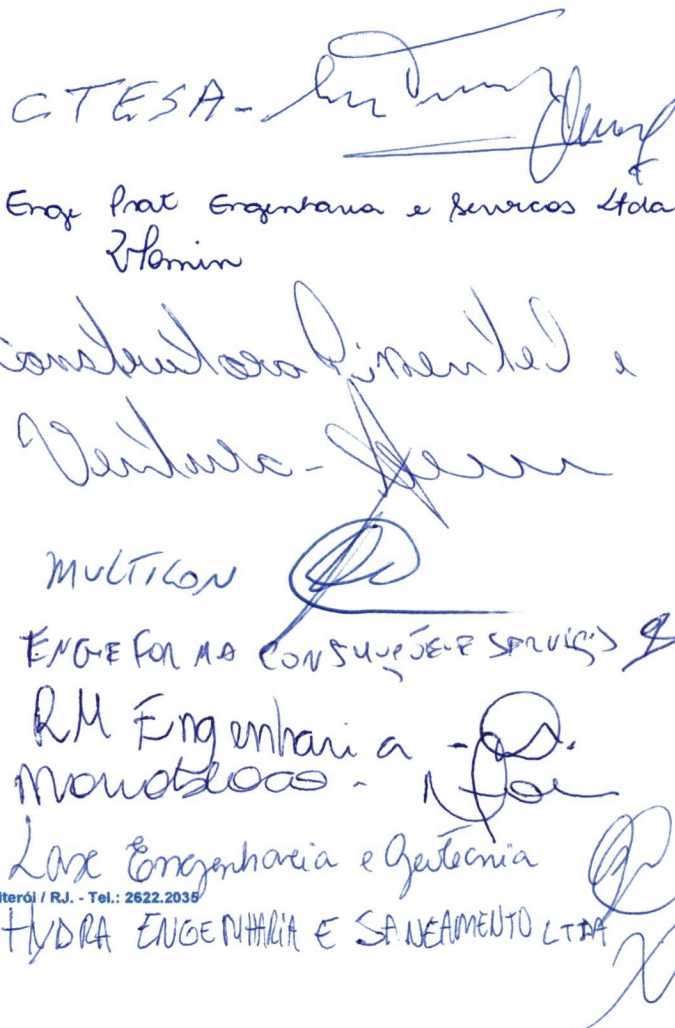 CTESA -
Enge Prat Engenharia e Servicos Ltda
Construtora Pimentel e
Ventura -
MULTICON
ENGEFORMA CONSTRUÇÕES E SERVIÇOS
RM Engenharia -
Monobloco -
Laxe Engenharia e Geotecnia
iterói / RJ. - Tel.: 2622.2035
HYDRA ENGENHARIA E SANEAMENTO LTDA